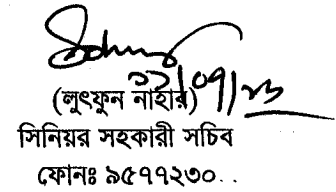 ১১/০৭/২৩
(লুৎফুন নাহার)
সিনিয়র সহকারী সচিব
ফোনঃ ৯৫৭৭২৩০..